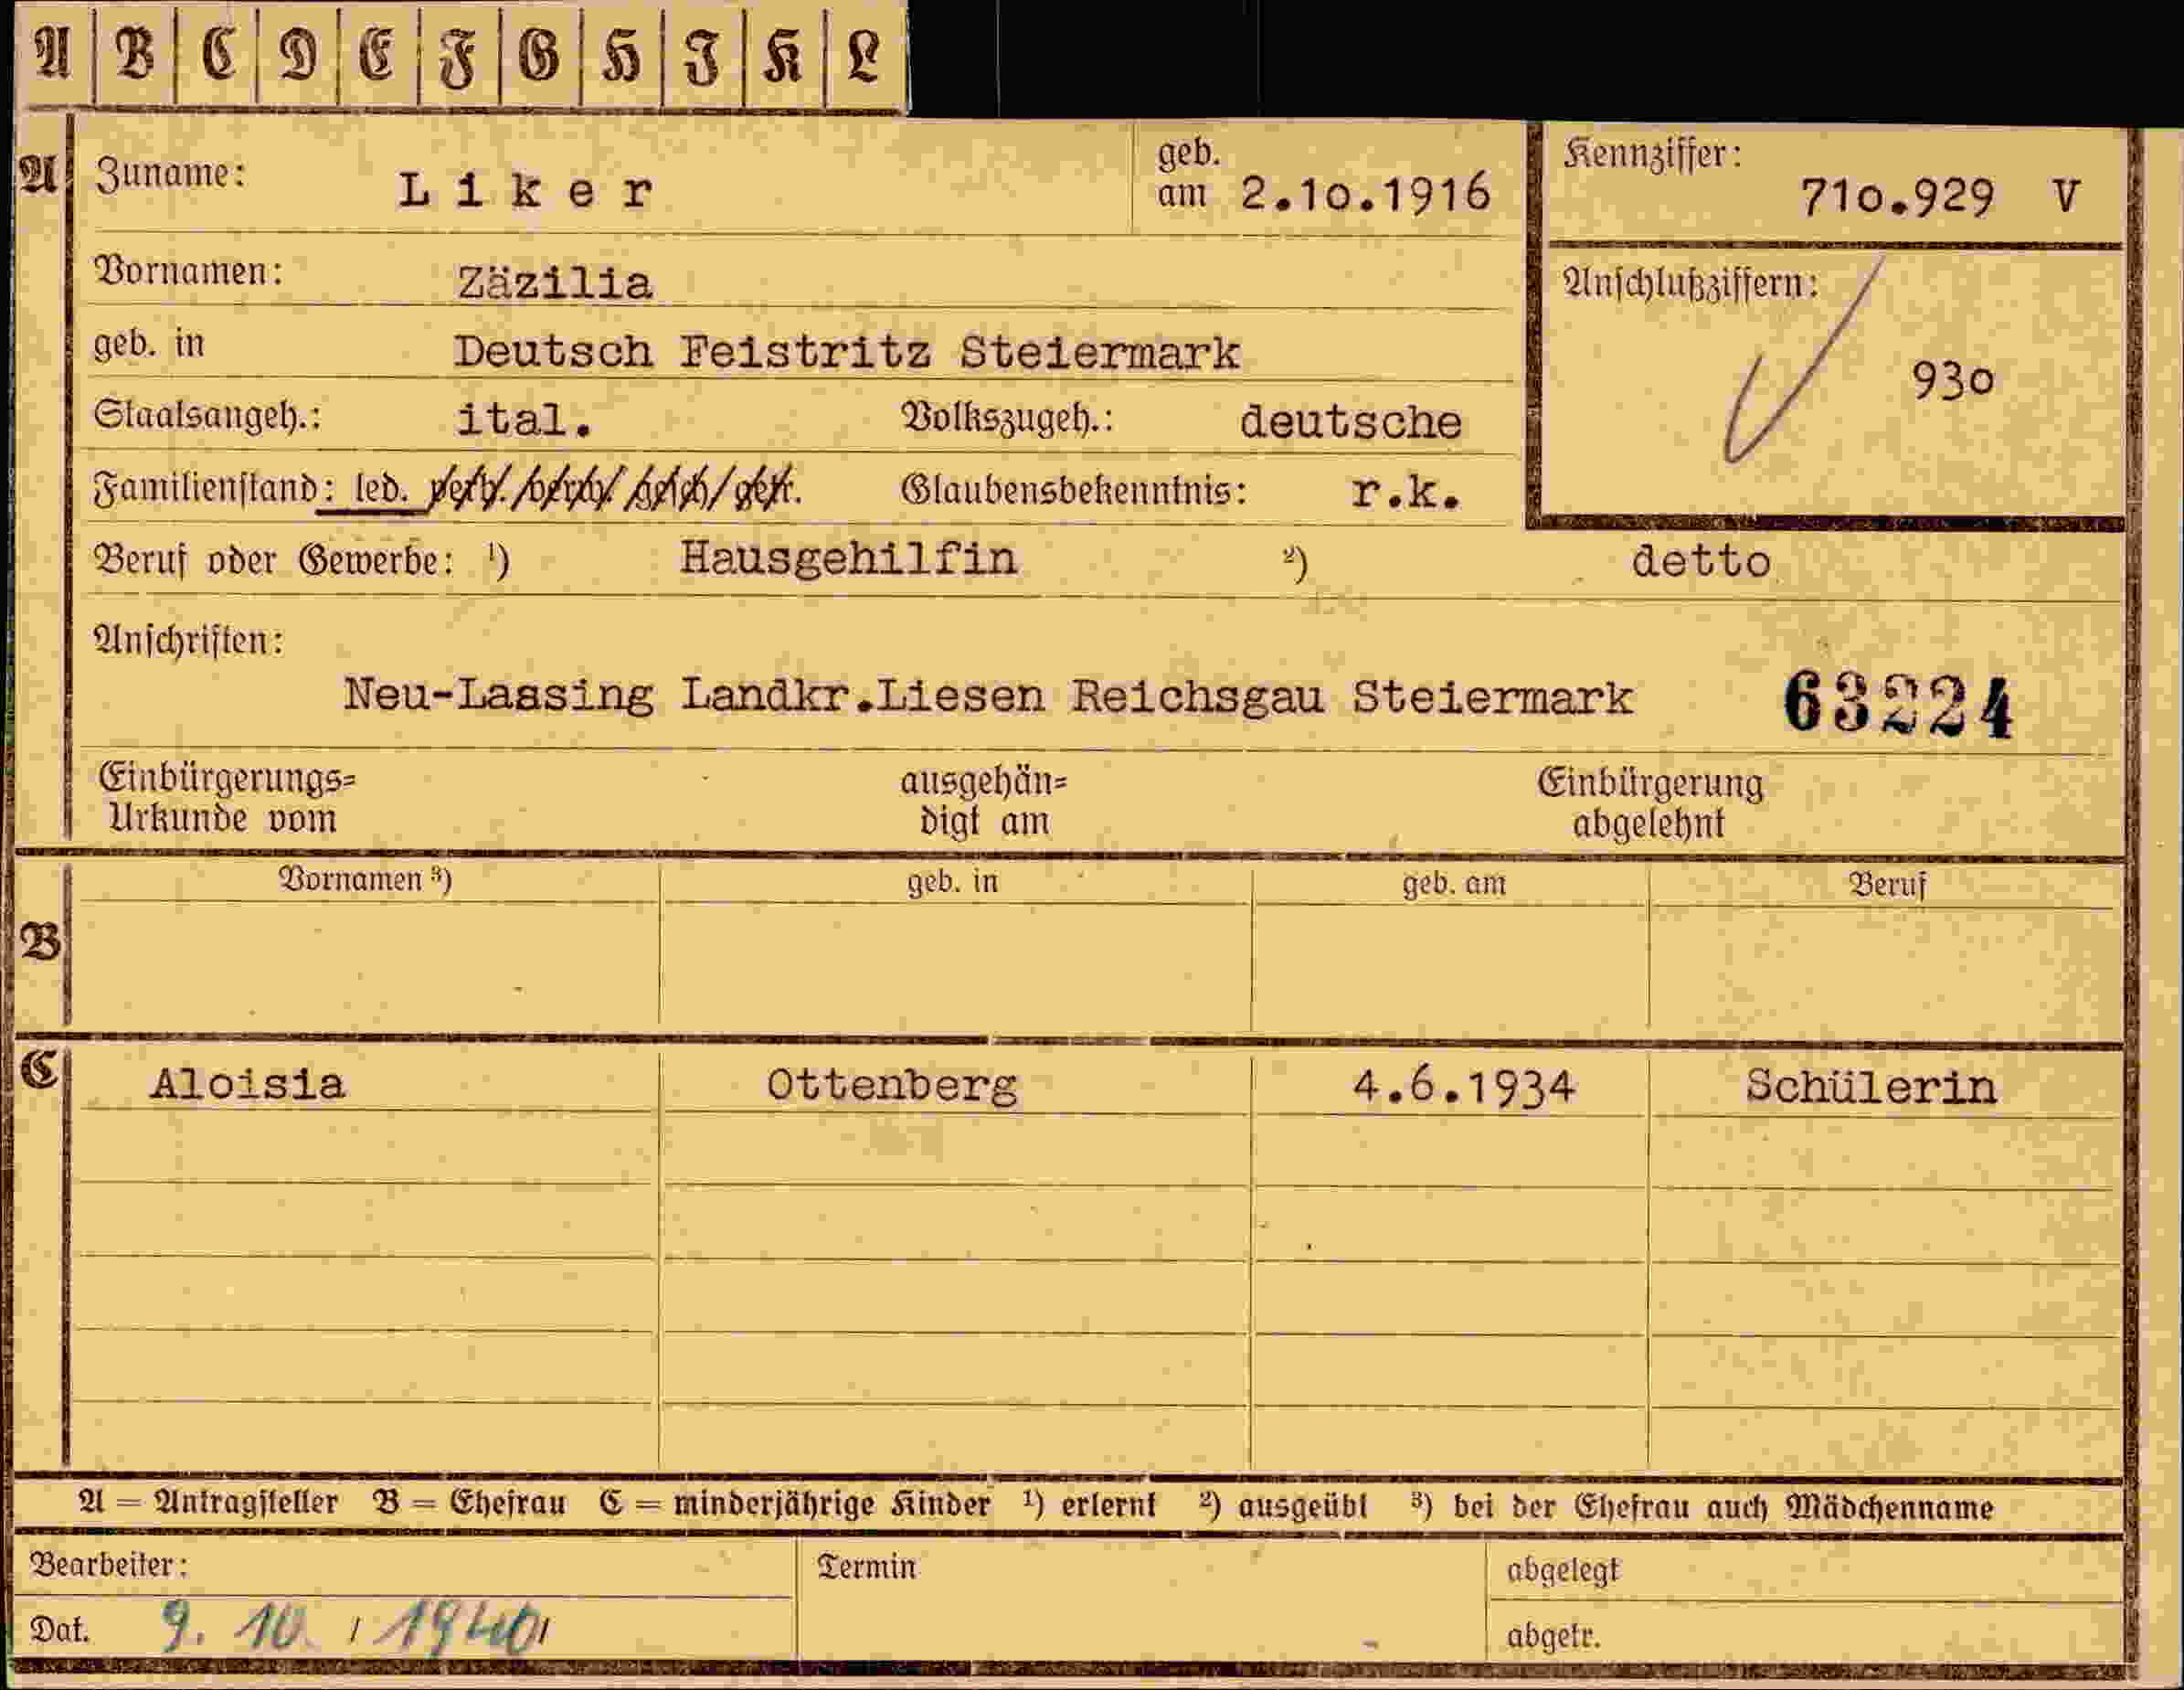 A B C D E F G H I K L
A Zuname: Liker geb. am 2.10.1916 Kennziffer: 710.929 V
Vornamen: Zäzilia Anschlußziffern: 930
geb. in Deutsch Feistritz Steiermark
Staatsangeh.: ital. Volkszugeh.: deutsche
Familienstand: led. verh. verw. gesch. getr. Glaubensbekenntnis: r.k.
Beruf oder Gewerbe: ¹) Hausgehilfin ²) detto
Anschriften:
Neu-Laasing Landkr.Liesen Reichsgau Steiermark 63224
Einbürgerungs= ausgehän= Einbürgerung
Urkunde vom digt am abgelehnt
Vornamen ³) geb. in geb. am Beruf
B
C Aloisia Ottenberg 4.6.1934 Schülerin
A = Antragsteller B = Ehefrau C = minderjährige Kinder ¹) erlernt ²) ausgeübt ³) bei der Ehefrau auch Mädchenname
Bearbeiter: Termin abgelegt
Dat. 9. 10. 1940 abgetr.